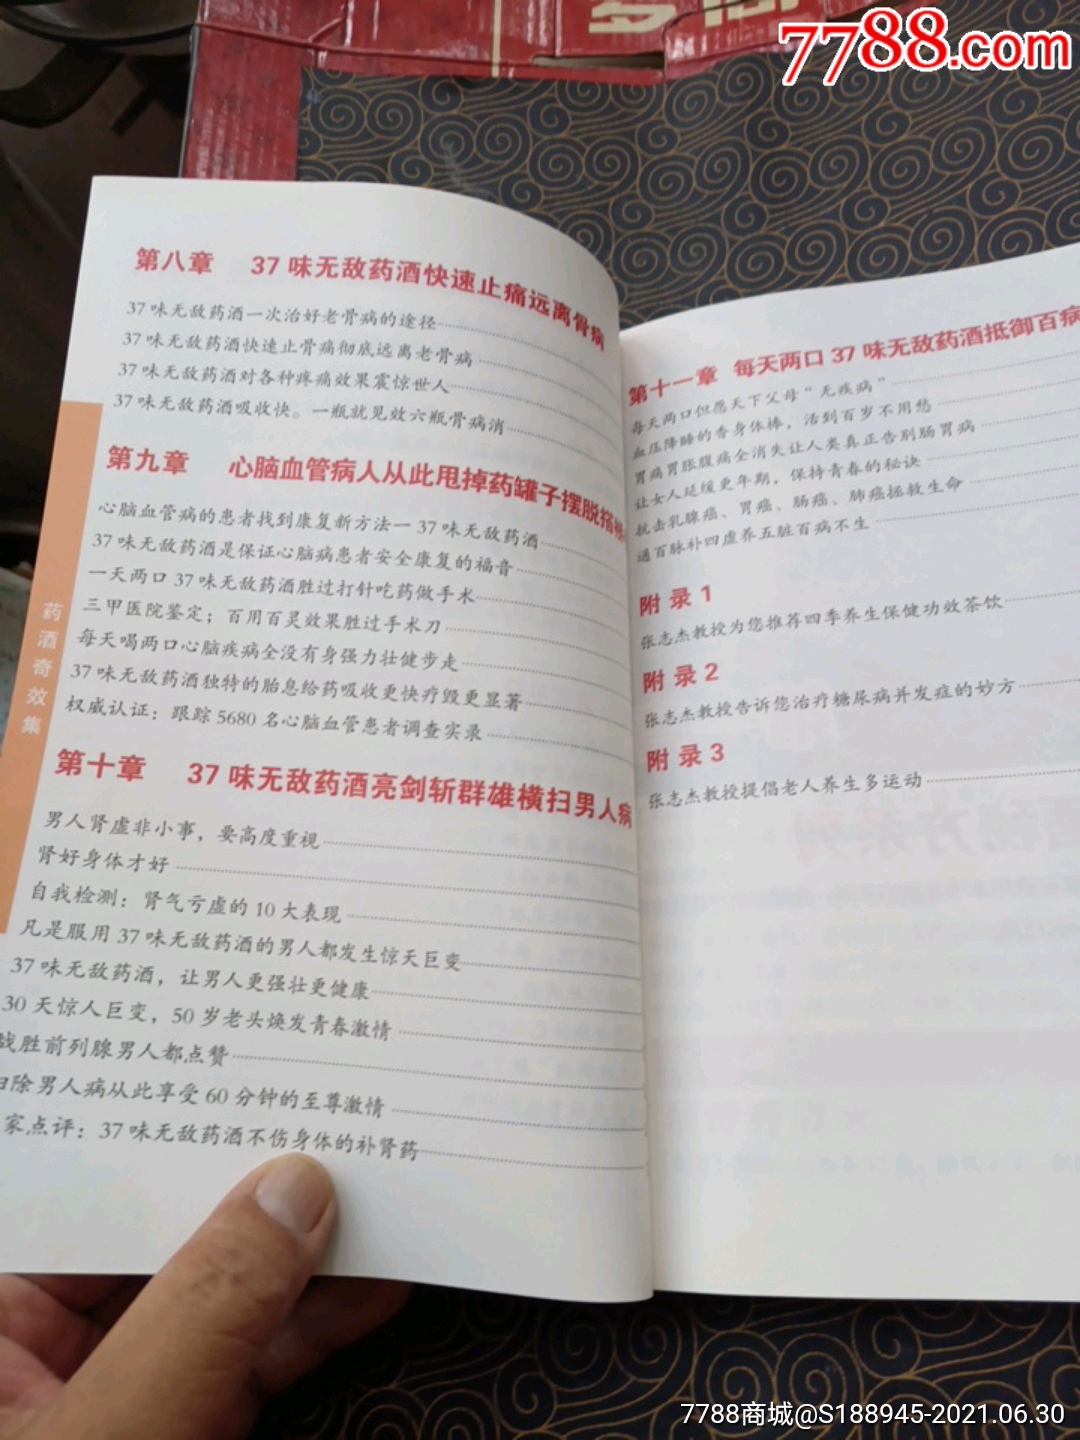 7788.com
第八章 37味无敌药酒快速止痛远离骨病
37味无敌药酒一次治好老骨病的途径
37味无敌药酒快速止骨痛彻底远离老骨病
37味无敌药酒对各种疼痛效果震惊世人
37味无敌药酒吸收快。一瓶就见效六瓶骨病消
第九章 心脑血管病人从此甩掉药罐子摆脱搭桥
心脑血管病的患者找到康复新方法一37味无敌药酒
37味无敌药酒是保证心脑病患者安全康复的福音
一天两口37味无敌药酒胜过打针吃药做手术
三甲医院鉴定；百用百灵效果胜过手术刀
每天喝两口心脑疾病全没有身强力壮健步走
37味无敌药酒独特的胎息给药吸收更快疗毁更显著
权威认证：跟踪5680名心脑血管患者调查实录
第十章 37味无敌药酒亮剑斩群雄横扫男人病
男人肾虚非小事，要高度重视
肾好身体才好
自我检测：肾气亏虚的10大表现
凡是服用37味无敌药酒的男人都发生惊天巨变
37味无敌药酒，让男人更强壮更健康
30天惊人巨变，50岁老头焕发青春激情
战胜前列腺男人都点赞
扫除男人病从此享受60分钟的至尊激情
家点评：37味无敌药酒不伤身体的补肾药
药酒奇效集
第十一章 每天两口37味无敌药酒抵御百病
每天两口但愿天下父母“无疾病”
血压降睡的香身体棒，活到百岁不用愁
胃痛胃胀腹痛全消失让人类真正告别肠胃病
让女人延缓更年期，保持青春的秘诀
抗击乳腺癌、胃癌、肠癌、肺癌拯救生命
通百脉补四虚养五脏百病不生
附录1
张志杰教授为您推荐四季养生保健功效茶饮
附录2
张志杰教授告诉您治疗糖尿病并发症的妙方
附录3
张志杰教授提倡老人养生多运动
7788商城@S188945-2021.06.30